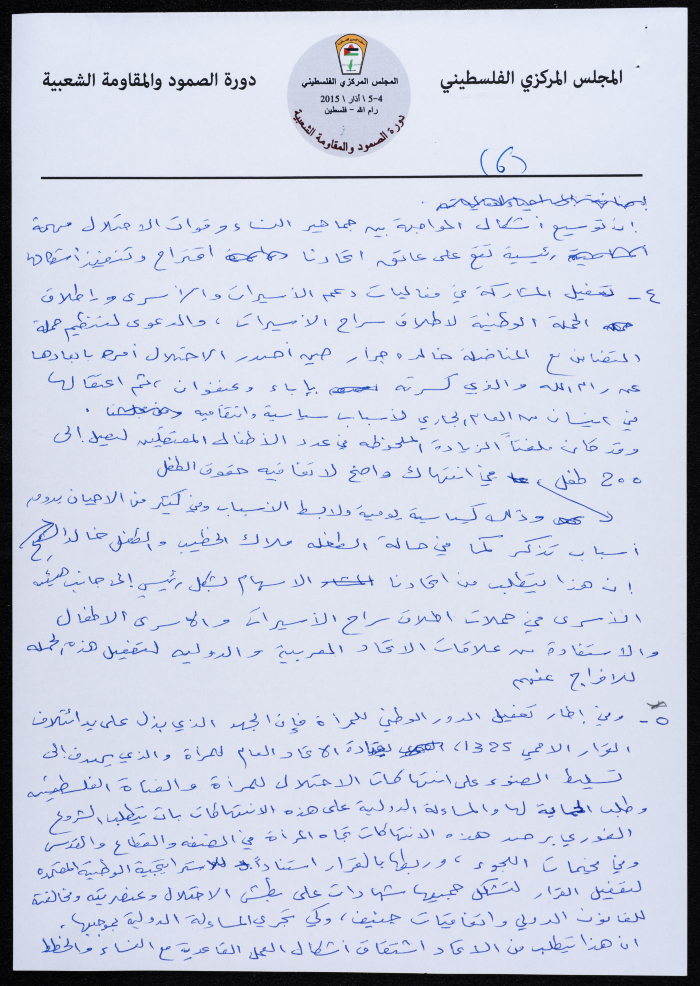 المجلس المركزي الفلسطيني
دورة الصمود والمقاومة الشعبية
المجلس المركزي الفلسطيني
4-5 \ آذار \ 2015
رام الله - فلسطين
دورة الصمود والمقاومة الشعبية
(6)
إن توسيع أشكال المواجهة بين جماهير النساء وقوات الاحتلال مهمة
رئيسية تقع على عاتق اتحادنا اقتراح وتنفيذ أشكالها
٤- تفعيل المشاركة في فعاليات دعم الأسيرات والأسرى وإطلاق
الحملة الوطنية لاطلاق سراح الأسيرات، والدعوى لتنظيم حملة
التضامن مع المناضلة خالده جرار حين أصدر الاحتلال أمره بابعادها
عن رام الله والذي كسرته بإباء وعنفوان، ثم اعتقالها
في نيسان من العام الجاري لأسباب سياسية وانتقاميه.
وقد كان ملفتاً الزيادة الملحوظه في عدد الأطفال المعتقلين ليصل إلى
200 طفل، في انتهاك واضح لاتفاقيه حقوق الطفل
وذلك كسياسية يومية ولابسط الأسباب وفي كثير من الاحيان بدون
أسباب تذكر كما في حالة الطفله ملاك الخطيب والطفل خالد الشيخ
إن هذا يتطلب من اتحادنا الاسهام بشكل رئيسي إلى جانب هيئة
الأسرى في حملات اطلاق سراح الأسيرات والاسرى الاطفال
والاستفادة من علاقات الاتحاد العربية والدوليه لتفعيل هذه الحمله
للافراج عنهم
٥- وفي إطار تفعيل الدور الوطني للمرأة فإن الجهد الذي بذل على يد ائتلاف
القرار الاممي 1325، بقيادة الاتحاد العام للمرأة والذي يهدف إلى
تسليط الضوء على انتهاكات الاحتلال للمرأة والفتاة الفلسطينيه
وطلب الحماية لها والمساءلة الدولية على هذه الانتهاكات بات يتطلب الشروع
الفوري برصد هذه الانتهاكات تجاه المرأة في الضفه والقطاع والقدس
وفي مخيمات اللجوء، وربطها بالقرار استناداً للاستراتيجية الوطنية المعتمده
لتفعيل القرار لتشكل جميعها شهادات على بطش الاحتلال وعنصريته ومخالفته
للقانون الدولي واتفاقيات جنيف، وكي تجري المساءلة الدولية بموجبها.
ان هذا يتطلب من الاتحاد اشتقاق أشكال العمل القاعدية مع النساء والخطط